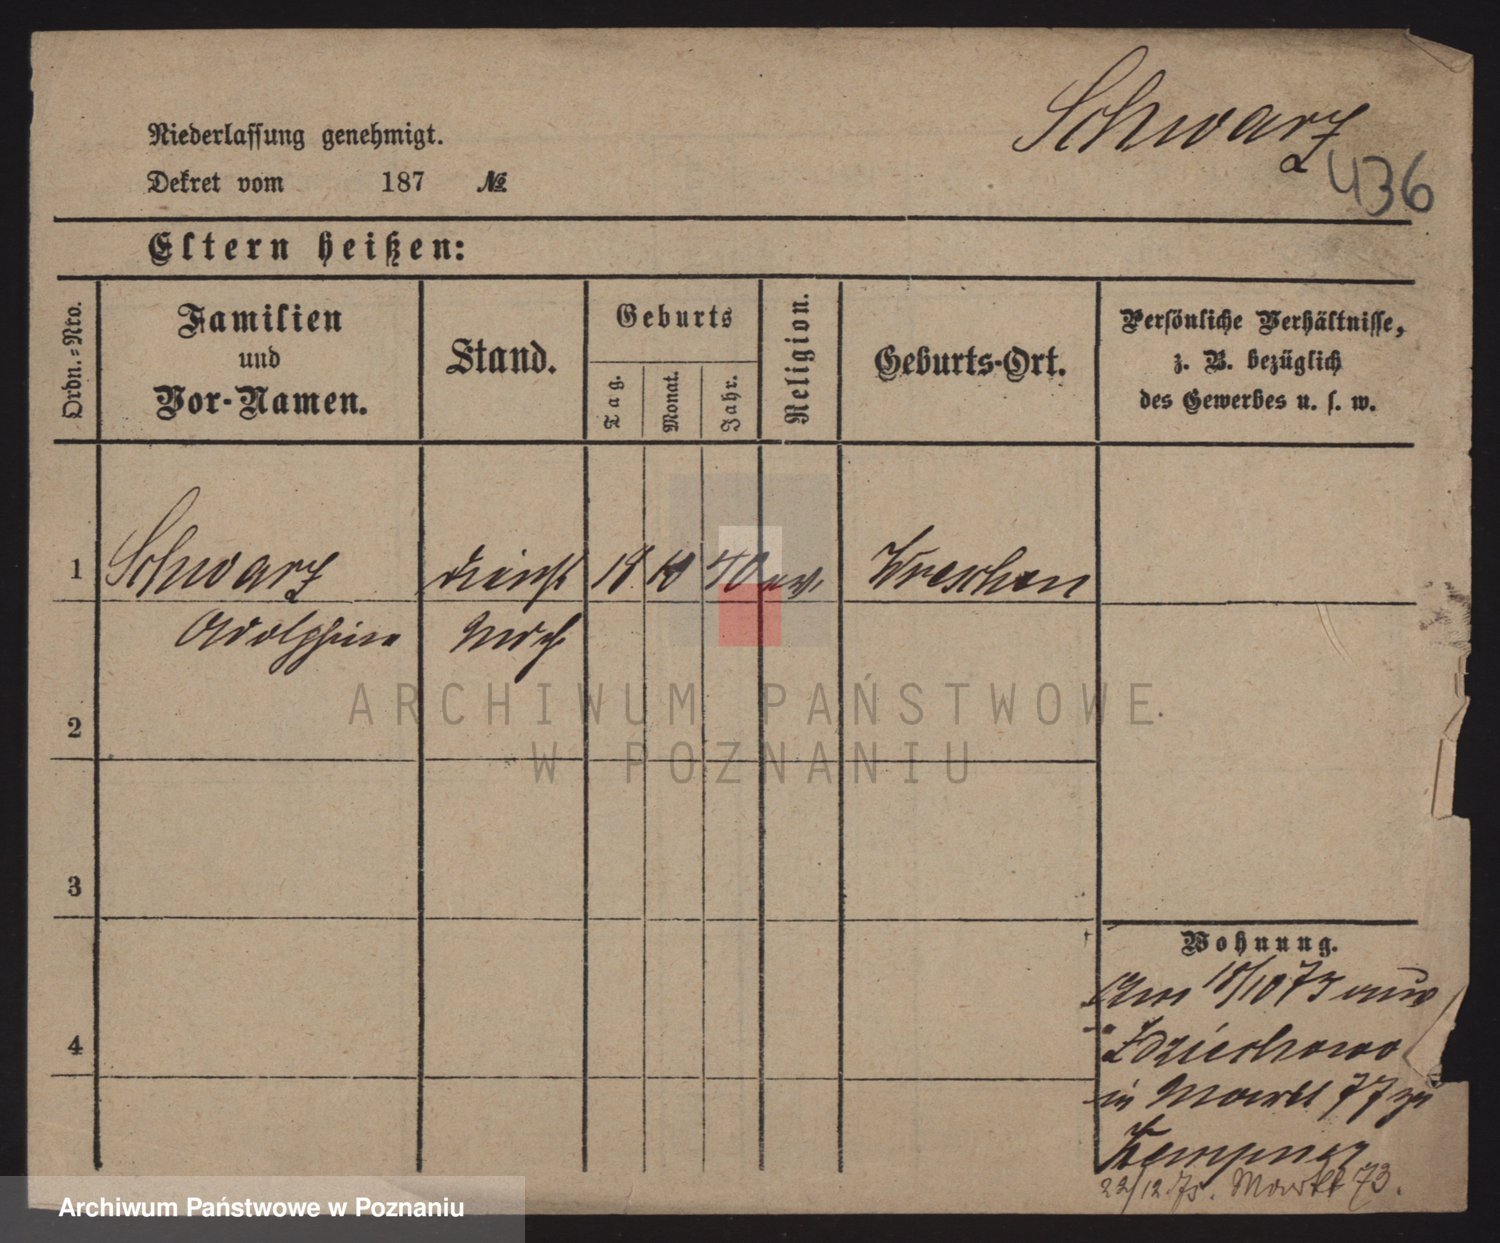 Schwarz
436
Niederlassung genehmigt.
Dekret vom 187 №
Eltern heißen:
Ordn.=Nro.
Familien
und
Vor-Namen.
Stand.
Geburts
Tag.
Monat.
Jahr.
Religion.
Geburts-Ort.
Persönliche Verhältnisse,
z. B. bezüglich
des Gewerbes u. s. w.
1 Schwarz 10 40 ev. Wreschen
Adolphine
2
3
Wohnung.
Am 18/10 75 aus
Zdziechowo
in Markt 77 zu
Kempner
4
22/12.75. Markt 73.
ARCHIWUM PAŃSTWOWE
W POZNANIU
Archiwum Państwowe w Poznaniu